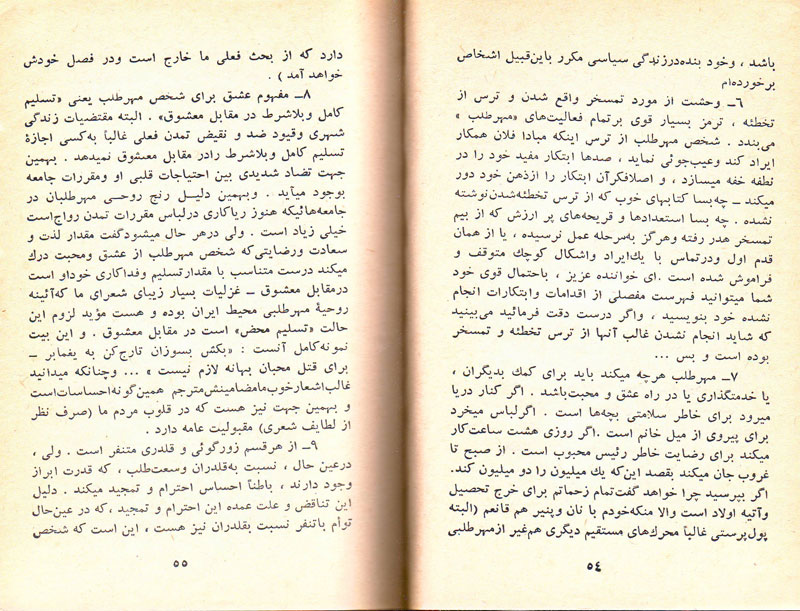 باشد ، وخود بنده درزندگی سیاسی مکرر باین‌قبیل اشخاص
برخورده‌ام
۶ــ وحشت از مورد تمسخر واقع شدن و ترس از
تخطئه ، ترمز بسیار قوی برتمام فعالیت‌های «مهرطلب »
می‌بندد . شخص مهرطلب از ترس اینکه مبادا فلان همکار
ایراد کند وعیب‌جوئی نماید ، صدها ابتکار مفید خود را در
نطفه خفه میسازد ، و اصلافکرآن ابتکار را ازذهن خود دور
میکند ــ چه‌بسا کتابهای خوب که از ترس تخطئه‌شدن‌نوشته
نشده . چه بسا استعدادها و قریحه‌های پر ارزش که از بیم
تمسخر هدر رفته وهرگز به‌سرحله عمل نرسیده ، یا از همان
قدم اول ودرتماس با یك‌ایراد واشکال کوچك متوقف و
فراموش شده است .ای خواننده عزیز ، باحتمال قوی خود
شما میتوانید فهرست مفصلی از اقدامات وابتکارات انجام
نشده خود بنویسید ، واگر درست دقت فرمائید می‌بینید
که شاید انجام نشدن غالب آنها از ترس تخطئه و تمسخر
بوده است و بس ...
۷ــ مهرطلب هرچه میکند باید برای کمك بدیگران ،
یا خدمتگذاری یا در راه عشق و محبت‌باشد . اگر کنار دریا
میرود برای خاطر سلامتی بچه‌ها است . اگرلباس میخرد
برای پیروی از میل خانم است .اگر روزی هشت ساعت‌کار
میکند برای رضایت خاطر رئیس محبوب است . از صبح تا
غروب جان میکند بقصد این‌که یك میلیون را دو میلیون کند.
اگر بپرسید چرا خواهد گفت‌تمام زحماتم برای خرج تحصیل
وآتیه اولاد است والا منکه‌خودم با نان وپنیر هم قانعم (البته
پول‌پرستی غالباً محرك‌های مستقیم دیگری هم‌غیر ازمهرطلبی
۵۴
دارد که از بحث فعلی ما خارج است ودر فصل خودش
خواهد آمد ) .
۸ــ مفهوم عشق برای شخص مهرطلب یعنی «تسلیم
کامل وبلاشرط در مقابل معشوق» . البته مقتضیات زندگی
شهری وقیود ضد و نقیض تمدن فعلی غالباً به‌کسی اجازهٔ
تسلیم کامل وبلاشرط رادر مقابل معشوق نمیدهد . بهمین
جهت تضاد شدیدی بین احتیاجات قلبی او ومقررات جامعه
بوجود میآید . وبهمین دلیـل رنج روحـی مهرطلبان در
جامعه‌هائیکه هنوز ریاکاری درلباس مقررات تمدن رواج‌است
خیلی زیاد است . ولی درهر حال میشودگفت مقدار لذت و
سعادت ورضایتی‌که شخص مهرطلب از عشق ومحبت درك
میکند درست متناسب با مقدارتسلیم وفداکاری خوداو است
درمقابل معشوق ــ غزلیات بسیار زیبای شعرای ما که‌آئینه
روحیهٔ مهرطلبی محیط ایران بوده و هست مؤید لزوم این
حالت «تسلیم محض» است در مقابل معشوق . و این بیت
نمونه‌کامل آنست : «بکش بسوزان تارج‌کن به یغمابر ــ
برای قتل محبان بهانه لازم نیست » ... وچنانکه میدانید
غالب‌اشعارخوب‌مامضامینش‌مترجم همین‌گونه‌احساسات‌است
و بهمین جهت نیز هست که در قلوب مردم ما (صرف نظر
از لطایف شعری) مقبولیت عامه دارد .
۹ــ از هرقسم زورگوئی و قلدری متنفر است . ولی ،
درعین حال ، نسبت به‌قلدران وسعت‌طلب ، که قدرت ابراز
وجود دارند ، باطناً احساس احترام و تمجید میکند . دلیل
این تناقض و علت عمده این احترام و تمجید ،که در عین‌حال
توأم باتنفر نسبت بقلدران نیز هست ، این است که شخص
۵۵